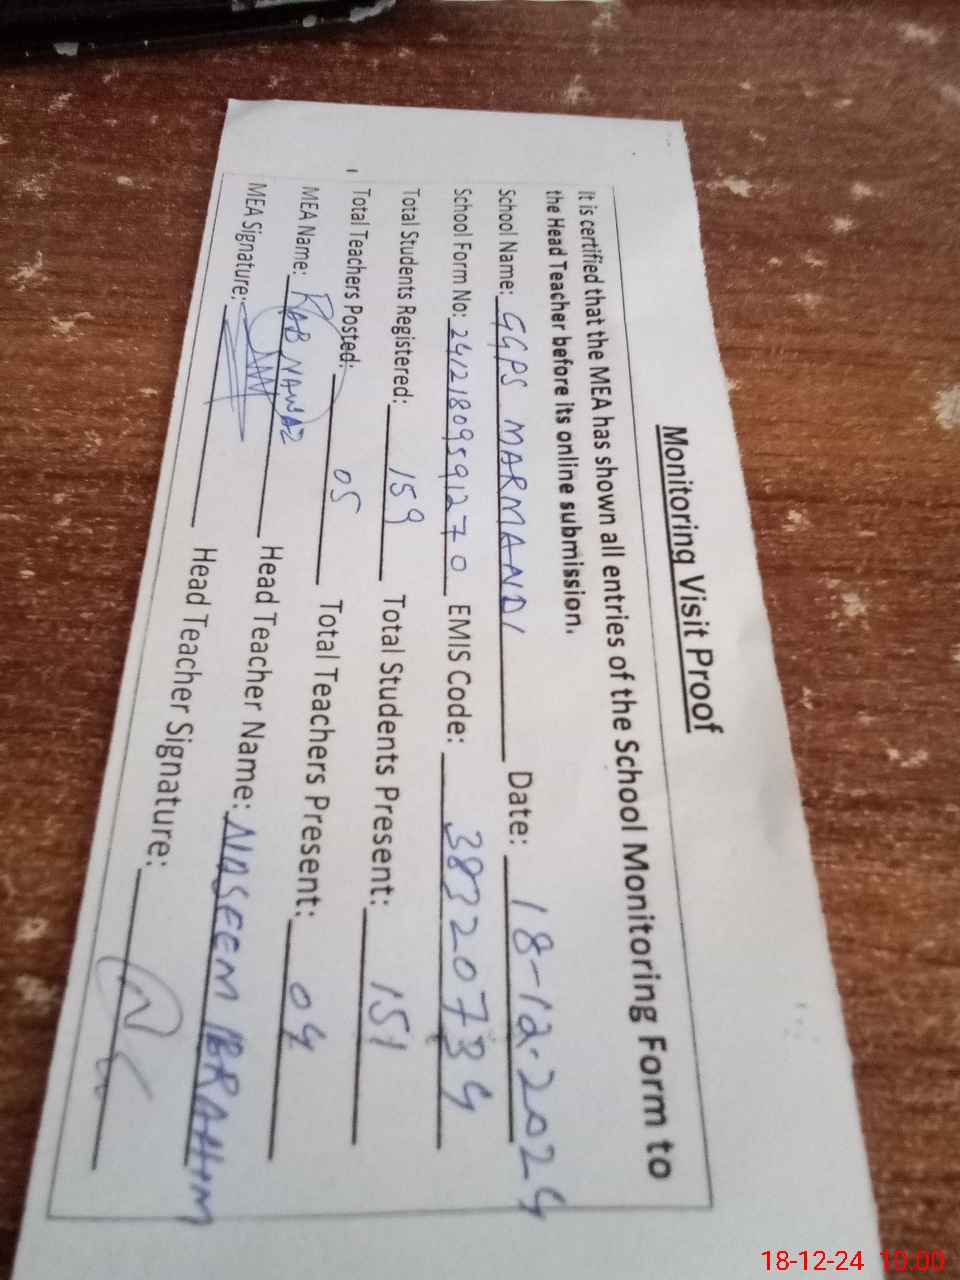 Monitoring Visit Proof
It is certified that the MEA has shown all entries of the School Monitoring Form to
the Head Teacher before its online submission.
School Name: GGPS MARMANDI Date: 18-12-2024
School Form No: 24121809591270 EMIS Code: 38320734
Total Students Registered: 159 Total Students Present: 151
Total Teachers Posted: 05 Total Teachers Present: 04
MEA Name: RAB NAWAZ Head Teacher Name: NASEEM IBRAHIM
MEA Signature: Head Teacher Signature:
18-12-24 10:00